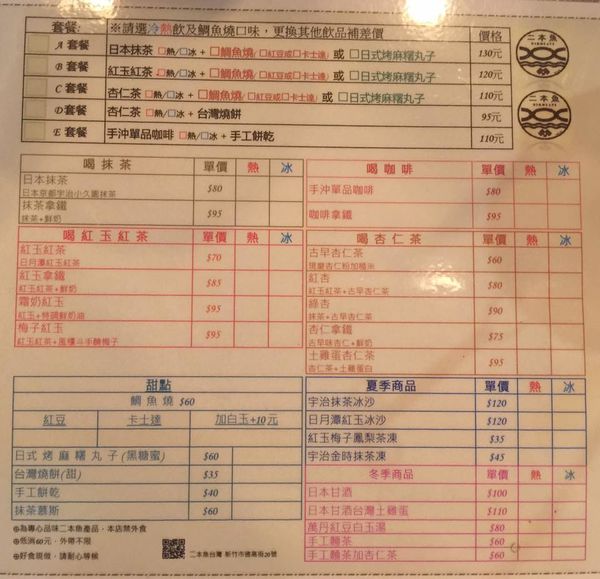 套餐: ※請選冷熱飲及鯛魚燒口味，更換其他飲品補差價 價格
A 套餐 日本抹茶 □熱/□冰 + □鯛魚燒(□紅豆或□卡士達) 或 □日式烤麻糬丸子 130元
B 套餐 紅玉紅茶 □熱/□冰 + □鯛魚燒(□紅豆或□卡士達) 或 □日式烤麻糬丸子 120元
C 套餐 杏仁茶 □熱/□冰 + □鯛魚燒(□紅豆或□卡士達) 或 □日式烤麻糬丸子 110元
D套餐 杏仁茶 □熱/□冰 + 台灣燒餅 95元
E 套餐 手沖單品咖啡 □熱/□冰 + 手工餅乾 110元
二本魚
二本魚
喝抹茶 單價 熱 冰
日本抹茶 $80
日本京都宇治小久園抹茶
抹茶拿鐵 $95
抹茶+鮮奶
喝咖啡 單價 熱 冰
手沖單品咖啡 $80
咖啡拿鐵 $95
喝紅玉紅茶 單價 熱 冰
紅玉紅茶 $70
日月潭紅玉紅茶
紅玉拿鐵 $85
紅玉紅茶+鮮奶
霜奶紅玉 $95
紅玉+特調鮮奶油
梅子紅玉 $95
紅玉紅茶+風櫃斗手釀梅子
喝杏仁茶 單價 熱 冰
古早杏仁茶 $60
現磨杏仁粉加糙米
紅杏 $80
紅玉紅茶+古早杏仁茶
綠杏 $90
抹茶+古早杏仁茶
杏仁拿鐵 $75
古早味杏仁+鮮奶
土雞蛋杏仁茶 $95
杏仁茶+土雞蛋白
甜點
鯛魚燒 $60
紅豆 卡士達 加白玉+10元
日式烤麻糬丸子(黑糖蜜) $60
台灣燒餅(甜) $35
手工餅乾 $40
抹茶慕斯 $60
夏季商品 單價 熱 冰
宇治抹茶冰沙 $120
日月潭紅玉冰沙 $120
紅玉梅子鳳梨茶凍 $35
宇治金時抹茶凍 $45
冬季商品 單價 熱 冰
日本甘酒 $100
日本甘酒台灣土雞蛋 $110
萬丹紅豆白玉湯 $80
手工麵茶 $60
手工麵茶加杏仁茶 $60
⊕為專心品味二本魚產品，本店禁外食
⊕低消60元，外帶不限
⊕好食現做，請耐心等候
二本魚台灣 新竹市德高街20號